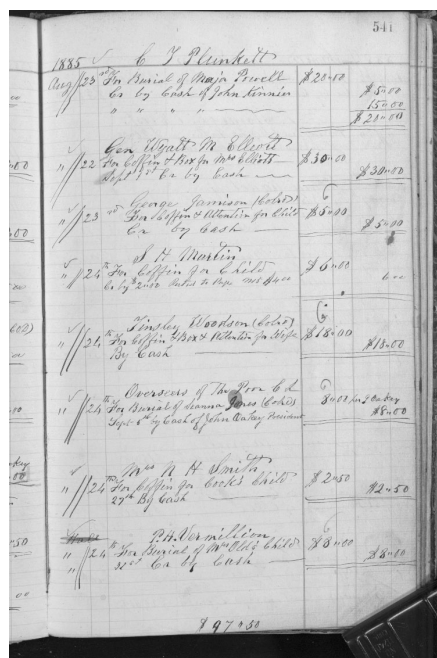 541
1885 C T Plunkett
Aug 23rd For Burial of Major Powell $20.00
Cr by Cash of John Kinnier $5.00
" " " " " 15.00
$20.00
Gen Wyatt M Elliott
" 22 For Coffin & Box for Mrs Elliott $30.00
Sept 1st Cr by Cash $30.00
George Jamison (Cold)
" 23rd For Coffin & Attention for Child $5.00
Cr by Cash $5.00
S H Martin
" 24th For Coffin for Child $6.00
Cr by 4.00
Tinsley Woodson (Cold)
" 24th For Coffin & Box & Attention for Wife $18.00
By Cash $18.00
Overseers of The Poor C L
" 24th For Burial of Jones (Cold) 8.00 per J Oakey
Sept 5th by Cash of John Oakey President $8.00
Mrs N H Smith
" 24th For Coffin for Cook's Child $2.50
27th By Cash $2.50
P.H. Vermillion
" 24th For Burial of Mrs Old's Child $8.00
" 31st Cr by Cash $8.00
$97.50